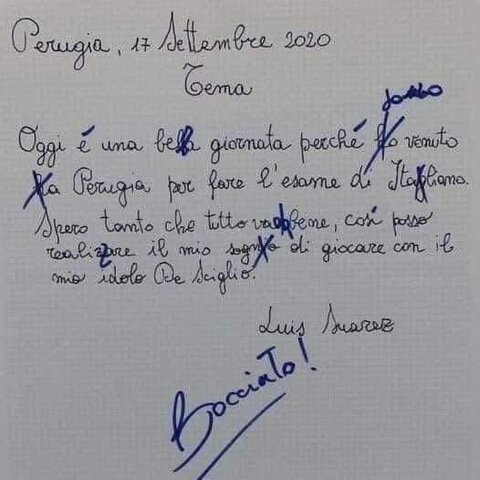 Perugia, 17 Settembre 2020
Tema
sono
Oggi é una bella giornata perché ho venuto
a Perugia per fare l'esame di Itagliano.
Spero tanto che tutto vadi bene, così posso
realizare il mio sogno di giocare con il
mio idolo De Sciglio.
Luis Suarez
Bocciato!